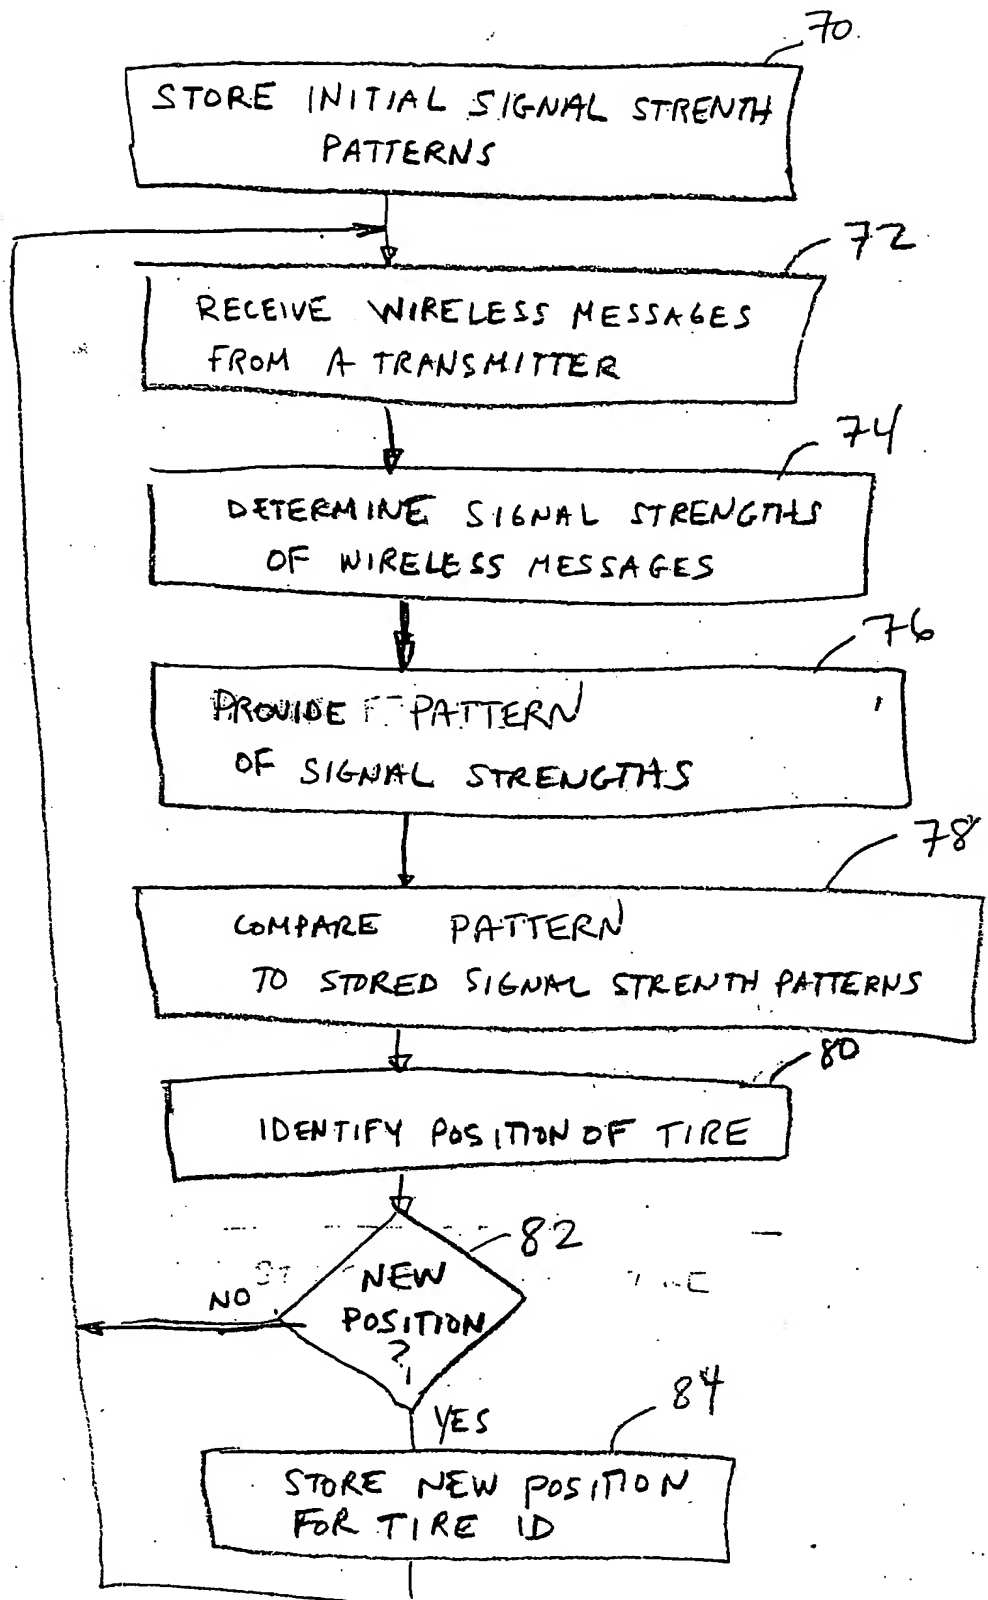 70
STORE INITIAL SIGNAL STRENTH
PATTERNS
72
RECEIVE WIRELESS MESSAGES
FROM A TRANSMITTER
74
DETERMINE SIGNAL STRENGTHS
OF WIRELESS MESSAGES
76
PROVIDE PATTERN
OF SIGNAL STRENGTHS
78
COMPARE PATTERN
TO STORED SIGNAL STRENTH PATTERNS
80
IDENTIFY POSITION OF TIRE
82
NEW
POSITION
?
NO
YES
84
STORE NEW POSITION
FOR TIRE ID